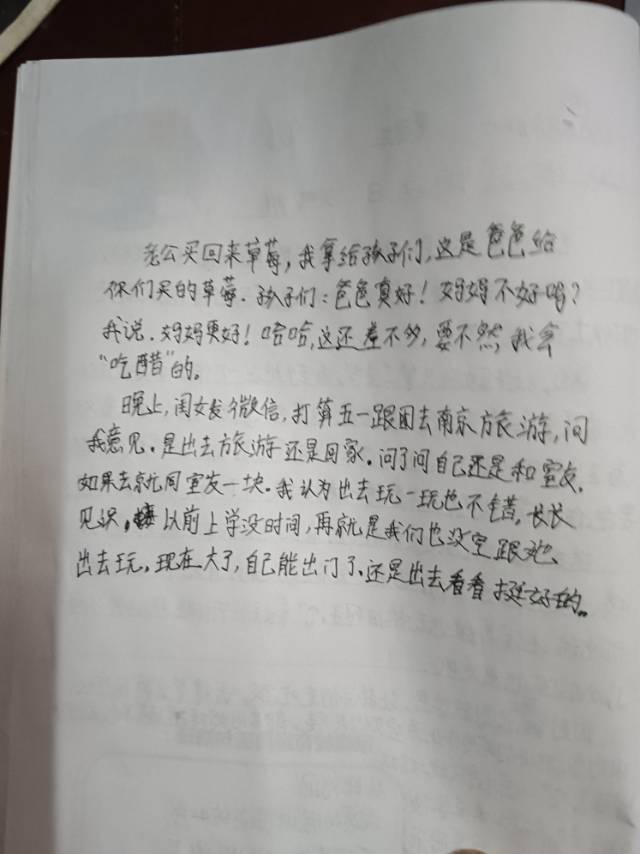 老公买回来草莓，我拿给孩子们，这是爸爸给
你们买的草莓．孩子们：爸爸真好！妈妈不好吗？
我说．妈妈更好！哈哈，这还差不多，要不然，我会
“吃醋”的。
晚上，闺女发个微信，打算五一跟团去南京旅游，问
我意见．是出去旅游还是回家．问了问自己还是和室友．
如果去就同室友一块．我认为出去玩一玩也不错，长长
见识，以前上学没时间，再就是我们也没空跟她
出去玩．现在大了，自己能出门了、还是出去看看挺好的。